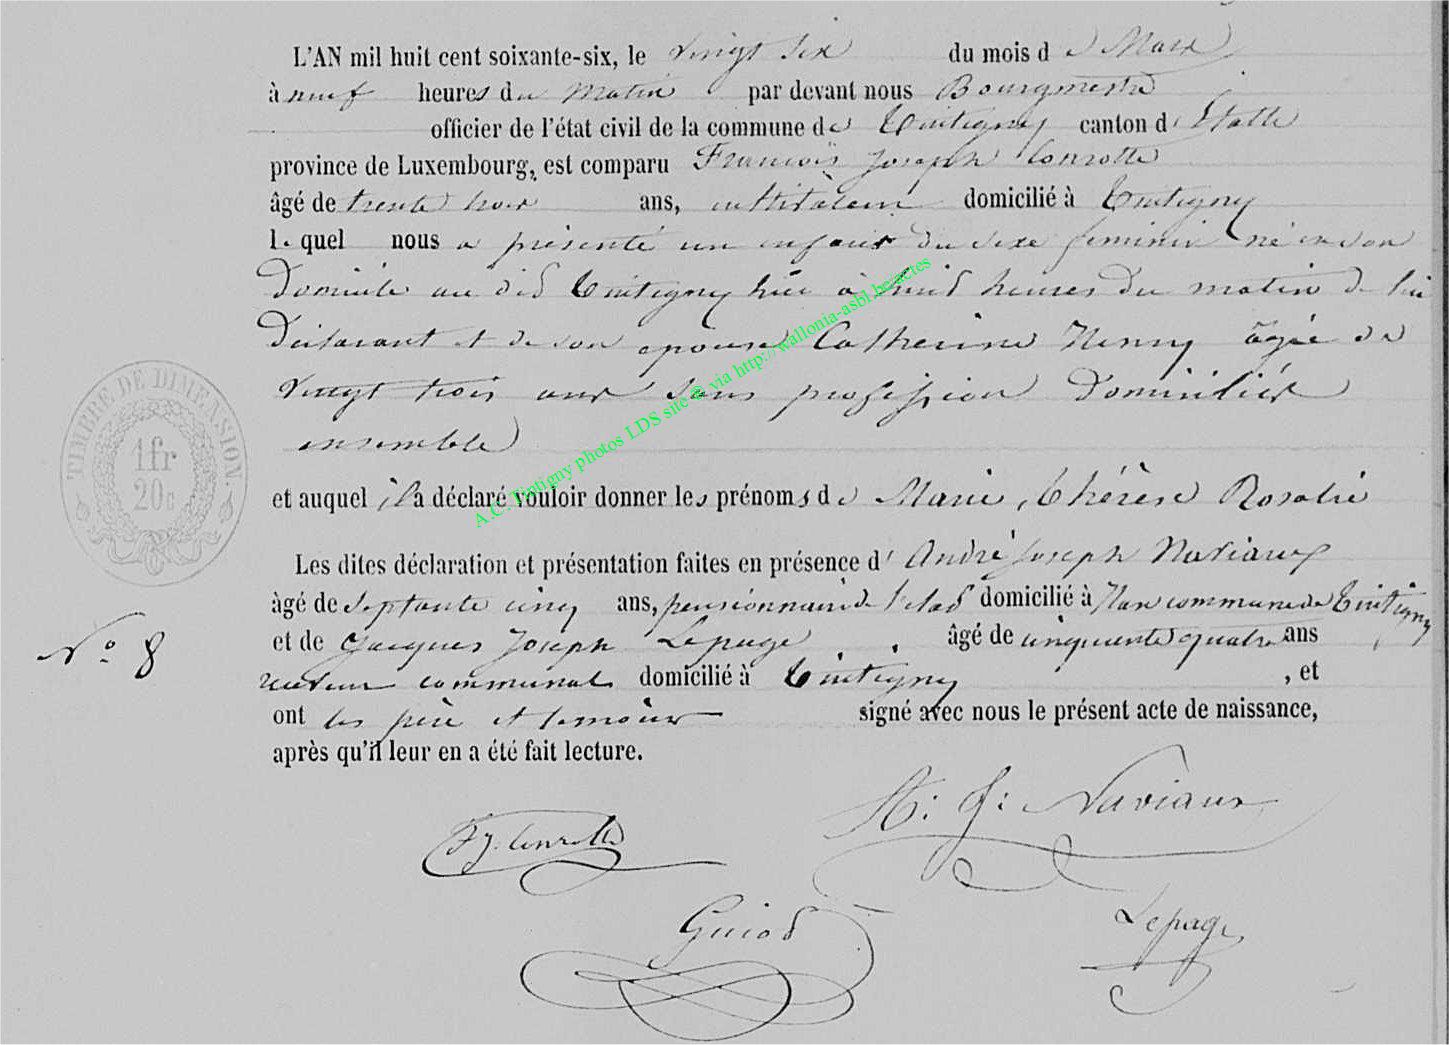 L'AN mil huit cent soixante-six, le vingt six du mois de Mars
à neuf heures du matin par devant nous Bourgmestre
officier de l'état civil de la commune de Tintigny canton d'Etalle
province de Luxembourg, est comparu François Joseph Conrotte
âgé de trente trois ans, instituteur domicilié à Tintigny
lequel nous a présenté un enfant du sexe feminin né en son
Domicile au dit Tintigny hier à huit heures du matin de lui
Déclarant et de son epouse Catherine Henry âgée de
vingt trois ans sans profession Domiciliés
ensemble
et auquel il a déclaré vouloir donner les prénoms de Marie, Thérèse Rosalie
Les dites déclaration et présentation faites en présence d'André Joseph Naviaux
àgé de septante cinq ans, pensionnaire de l'etat domicilié à Han commune de Tintigny
et de Jacques Joseph Lepage âgé de cinquante quatre ans
receveur communal domicilié à Tintigny , et
ont les père et temoins signé avec nous le présent acte de naissance,
après qu'il leur en a été fait lecture.
TIMBRE DE DIMENSION.
1fr
20c
N° 8
A.C. Tintigny photos LDS site © via http://wallonia-asbl.be/actes
A: J: Naviaux
F J. Conrotte
Guiot
Lepage